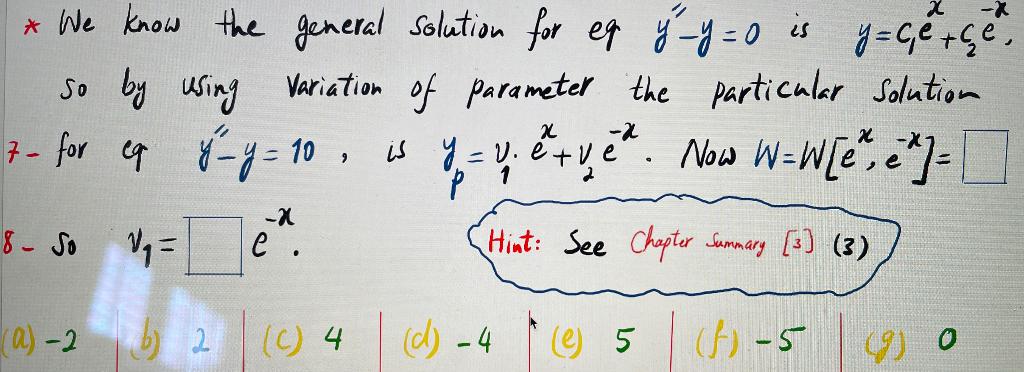 * We know the general solution for eq y″-y=0 is y=c₁eˣ+c₂e⁻ˣ,
so by using Variation of parameter the particular solution
7- for eq y″-y=10, is yₚ=v₁.eˣ+v₂e⁻ˣ. Now W=W[eˣ, e⁻ˣ]=
8- So v₁= e⁻ˣ. Hint: See Chapter Summary [3] (3)
(a) -2 (b) 2 (c) 4 (d) -4 (e) 5 (f) -5 (g) 0